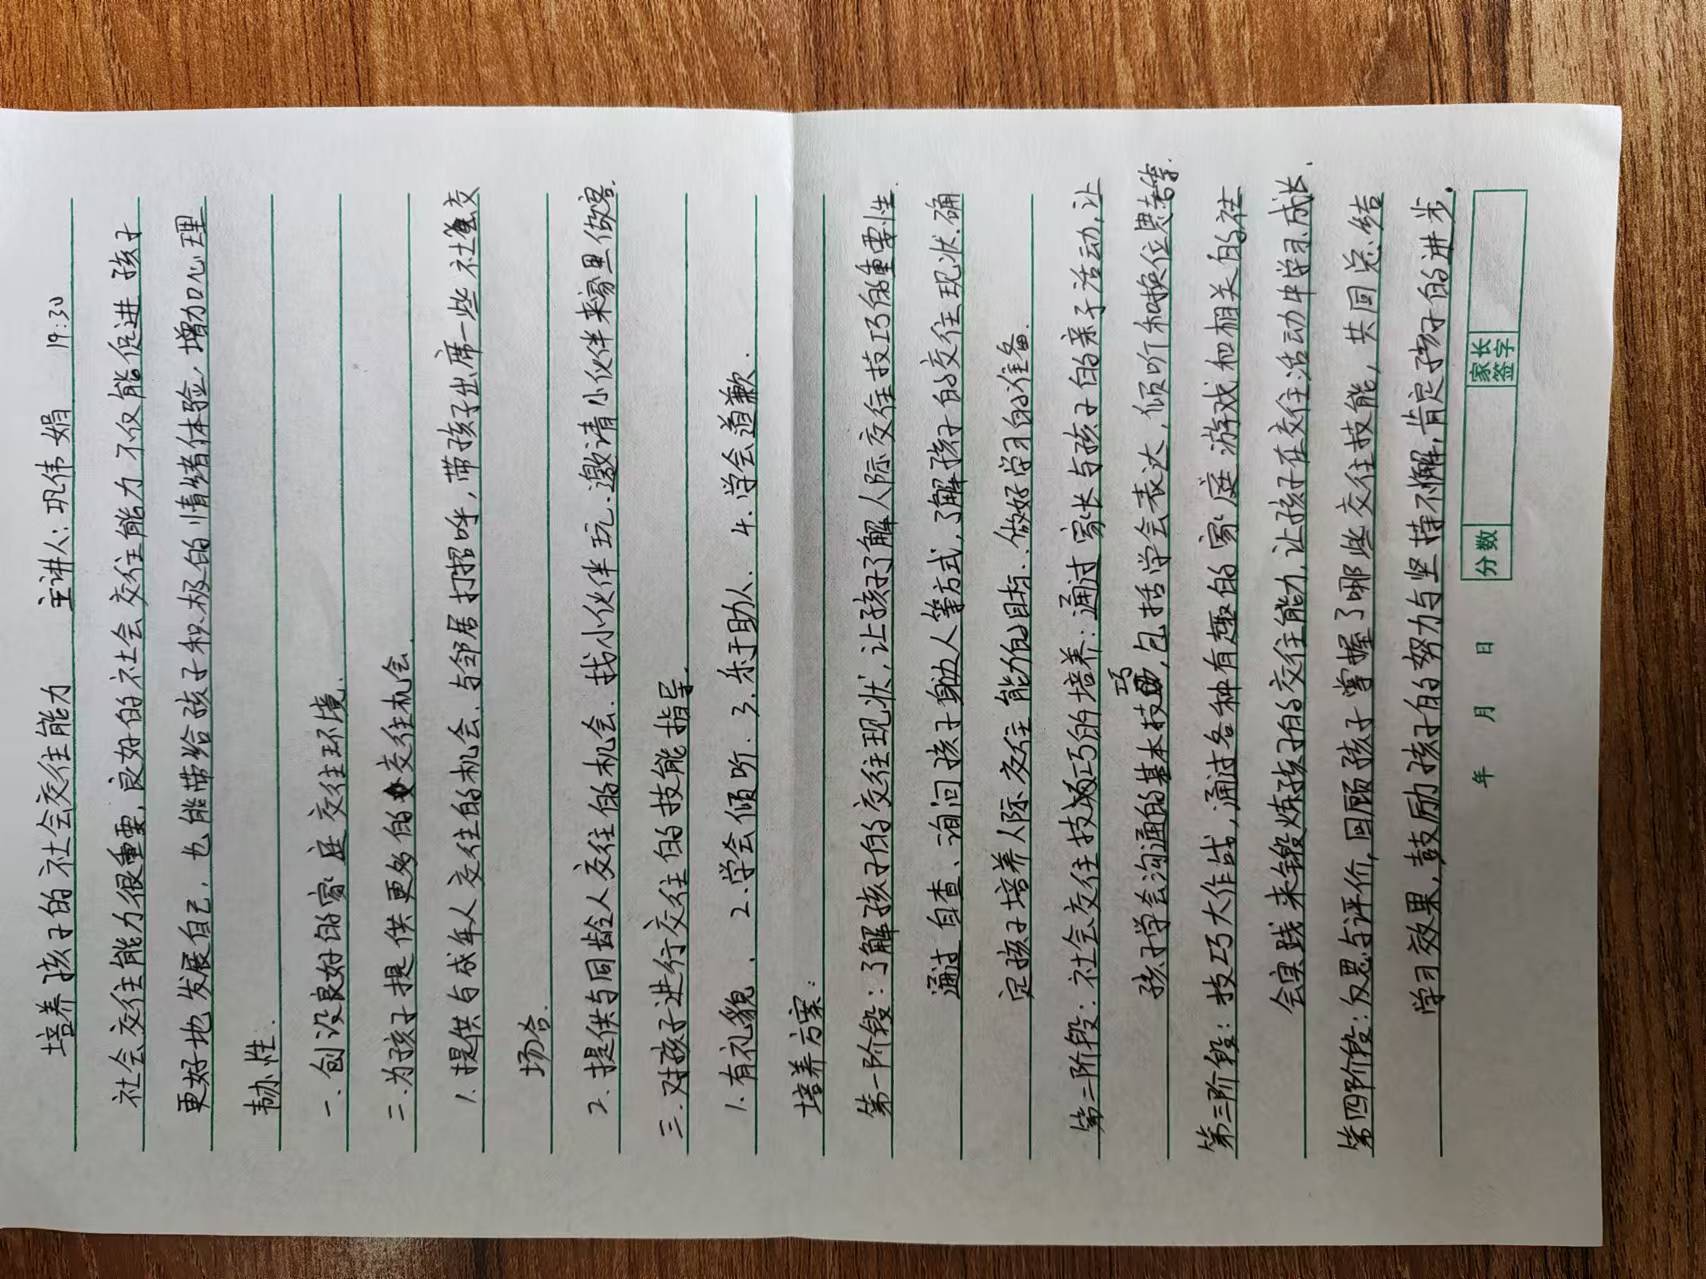 培养孩子的社会交往能力 主讲人:巩伟娟 19:30
社会交往能力很重要,良好的社会交往能力不仅能促进孩子
更好地发展自己,也能带给孩子积极的情绪体验,增加心理
韧性.
一.创设良好的家庭交往环境.
二.为孩子提供更多的交往机会.
1.提供与成年人交往的机会、与邻居打招呼,带孩子出席一些社交
场合.
2.提供与同龄人交往的机会.找小伙伴玩.邀请小伙伴来家里做客.
三.对孩子进行交往的技能指导.
1.有礼貌、2.学会倾听.3.乐于助人.4.学会道歉.
培养方案:
第一阶段:了解孩子的交往现状,让孩子了解人际交往技巧的重要性.
通过自查、询问孩子身边人等方式,了解孩子的交往现状.确
定孩子培养人际交往能力的目标、做好学习的准备.
第二阶段:社会交往技巧的培养:通过家长与孩子的亲子活动,让
孩子学会沟通的基本技巧,包括学会表达,倾听和换位思考等.
第三阶段:技巧大作战,通过各种有趣的家庭游戏和相关的社
会实践来锻炼孩子的交往能力,让孩子在交往活动中学习成长.
第四阶段:反思与评价,回顾孩子掌握了哪些交往技能,共同总结
学习效果,鼓励孩子的努力与坚持不懈,肯定孩子的进步.
年 月 日 分数 家长签字